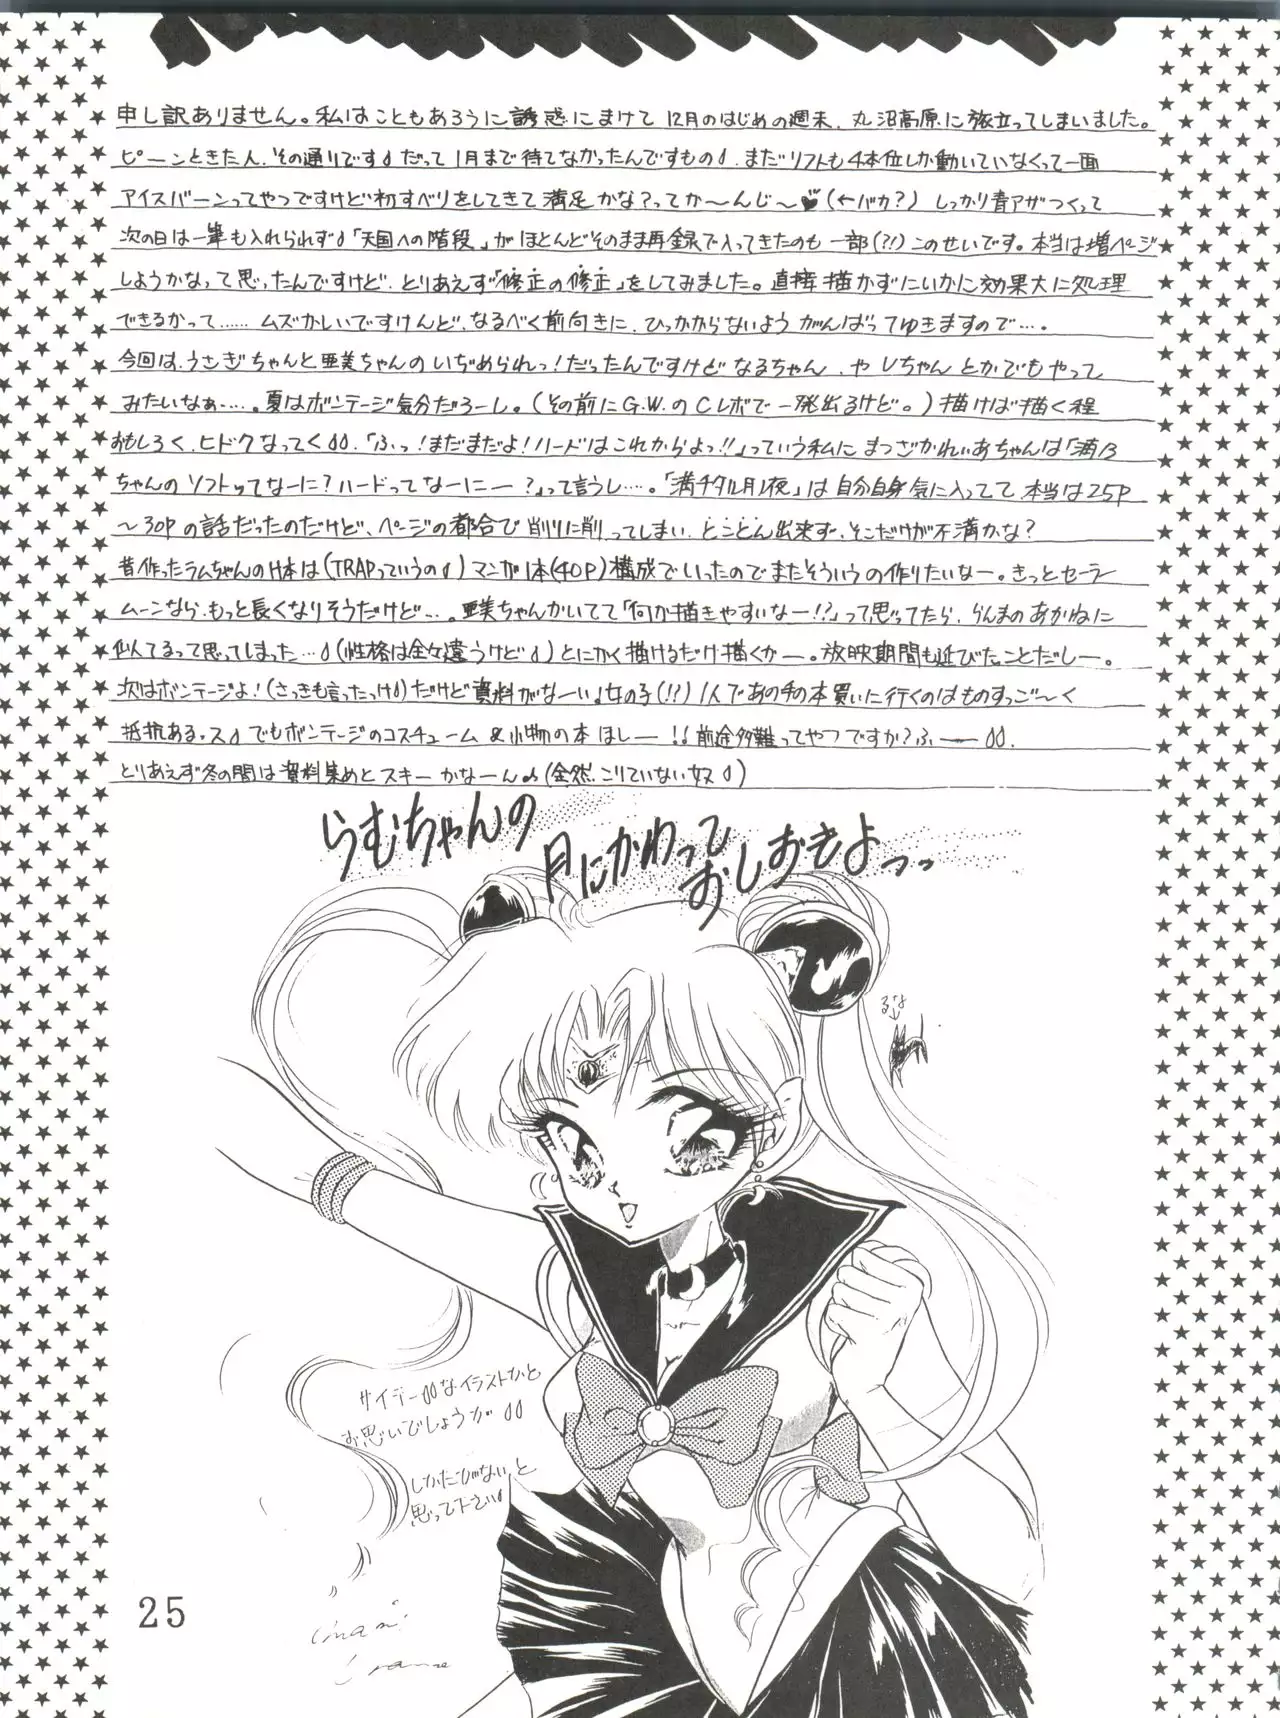 申し訳ありません。私はこともあろうに誘惑にまけて12月のはじめの週末、丸沼高原に旅立ってしまいました。
ピーンときた人、その通りです。だって1月まで待てなかったんですもの。まだリフトも4本位しか動いていなくって一面
アイスバーンってやつですけど初すべりをしてきて満足かな?ってか〜んじ〜♥(←バカ?)しっかり青アザつくって
次の日は一筆も入れられず「天国への階段」がほとんどそのまま再録で入ってきたのも一部(?!)このせいです。本当は増ページ
しようかなって思ったんですけど、とりあえず「修正の修正」をしてみました。直接描かずにいかに効果大に処理
できるかって……ムズかしいですけんど、なるべく前向きに、ひっかからないようがんばってゆきますので…。
今回は、うさぎちゃんと亜美ちゃんのいぢめられっ!だったんですけどなるちゃん、やVちゃんとかでもやって
みたいなぁ…。夏はボンテージ気分だろーし。(その前にG.W.のCレボで一発出るけど。)描けば描く程
おもしろく、ヒドクなってく。「ふっ!まだまだよ!ハードはこれからよっ!!」っていう私にまつざかれいあちゃんは「満乃
ちゃんのソフトってなーに?ハードってなーにー?」って言うし…。「満チタル月夜」は自分自身気に入ってて、本当は25P
〜30Pの話だったのだけど、ページの都合で削りに削ってしまい、とことん出来ず、そこだけが不満かな?
昔作ったラムちゃんのH本は(TRAPっていうの)マンガ1本(40P)構成でいったのでまたそういうの作りたいなー。きっとセーラー
ムーンなら、もっと長くなりそうだけど…。亜美ちゃんかいてて「何か描きやすいなー!?」って思ってたら、らんまのあかねに
似てるって思ってしまった…(性格は全々違うけど)とにかく描けるだけ描くかー。放映期間も延びたことだしー。
次はボンテージよ!(さっきも言ったっけ)だけど資料がなーい。女の子(!?)1人であの手の本買いに行くのはものすっご〜く
抵抗ある、ス。でもボンテージのコスチューム&小物の本ほしー!!前途多難ってやつですか?ふー。
とりあえず冬の間は資料集めとスキーかなーん♪(全然、こりていない奴)
らむちゃんの
月にかわって
おしおきよっっ
るな
↓
サイテーなイラストだと
お思いでしょうが
しかたがないと
思って下さい
25